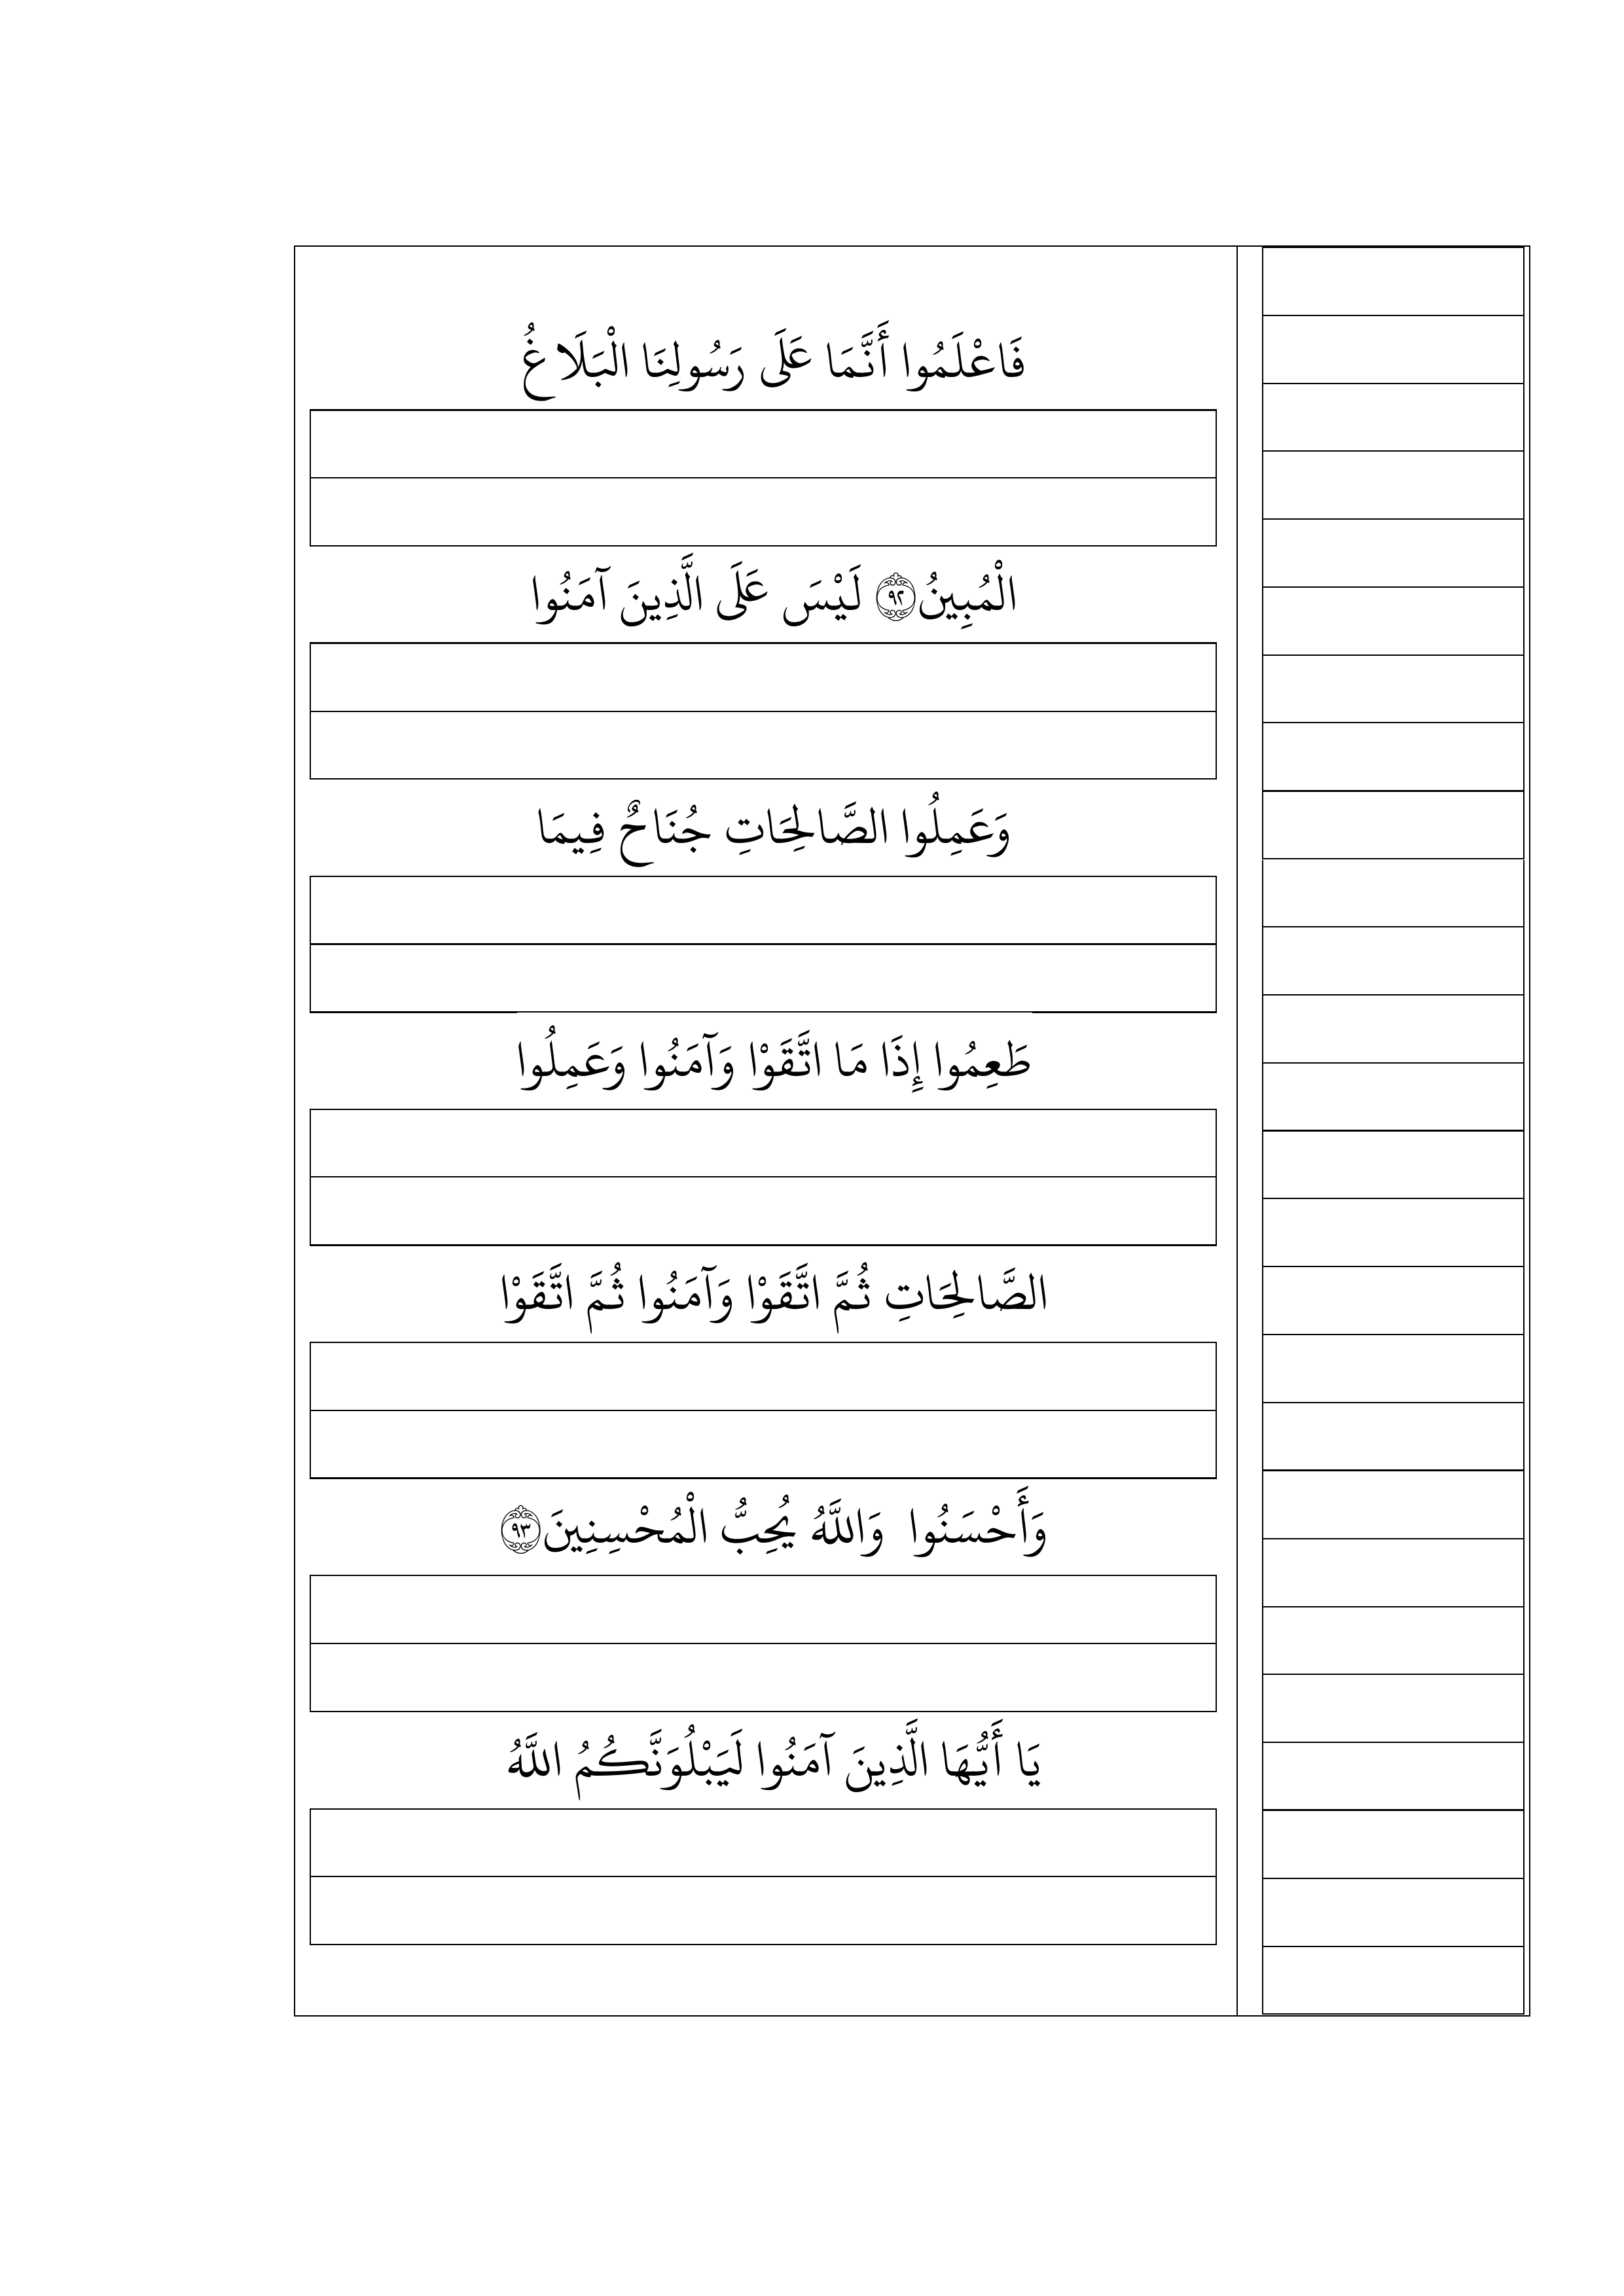 فَاعْلَمُوا أَنَّمَا عَلَى رَسُولِنَا الْبَلَاغُ
الْمُبِينُ ﴿٩٢﴾ لَيْسَ عَلَى الَّذِينَ آمَنُوا
وَعَمِلُوا الصَّالِحَاتِ جُنَاحٌ فِيمَا
طَعِمُوا إِذَا مَا اتَّقَوْا وَآمَنُوا وَعَمِلُوا
الصَّالِحَاتِ ثُمَّ اتَّقَوْا وَآمَنُوا ثُمَّ اتَّقَوْا
وَأَحْسَنُوا وَاللَّهُ يُحِبُّ الْمُحْسِنِينَ ﴿٩٣﴾
يَا أَيُّهَا الَّذِينَ آمَنُوا لَيَبْلُوَنَّكُمُ اللَّهُ